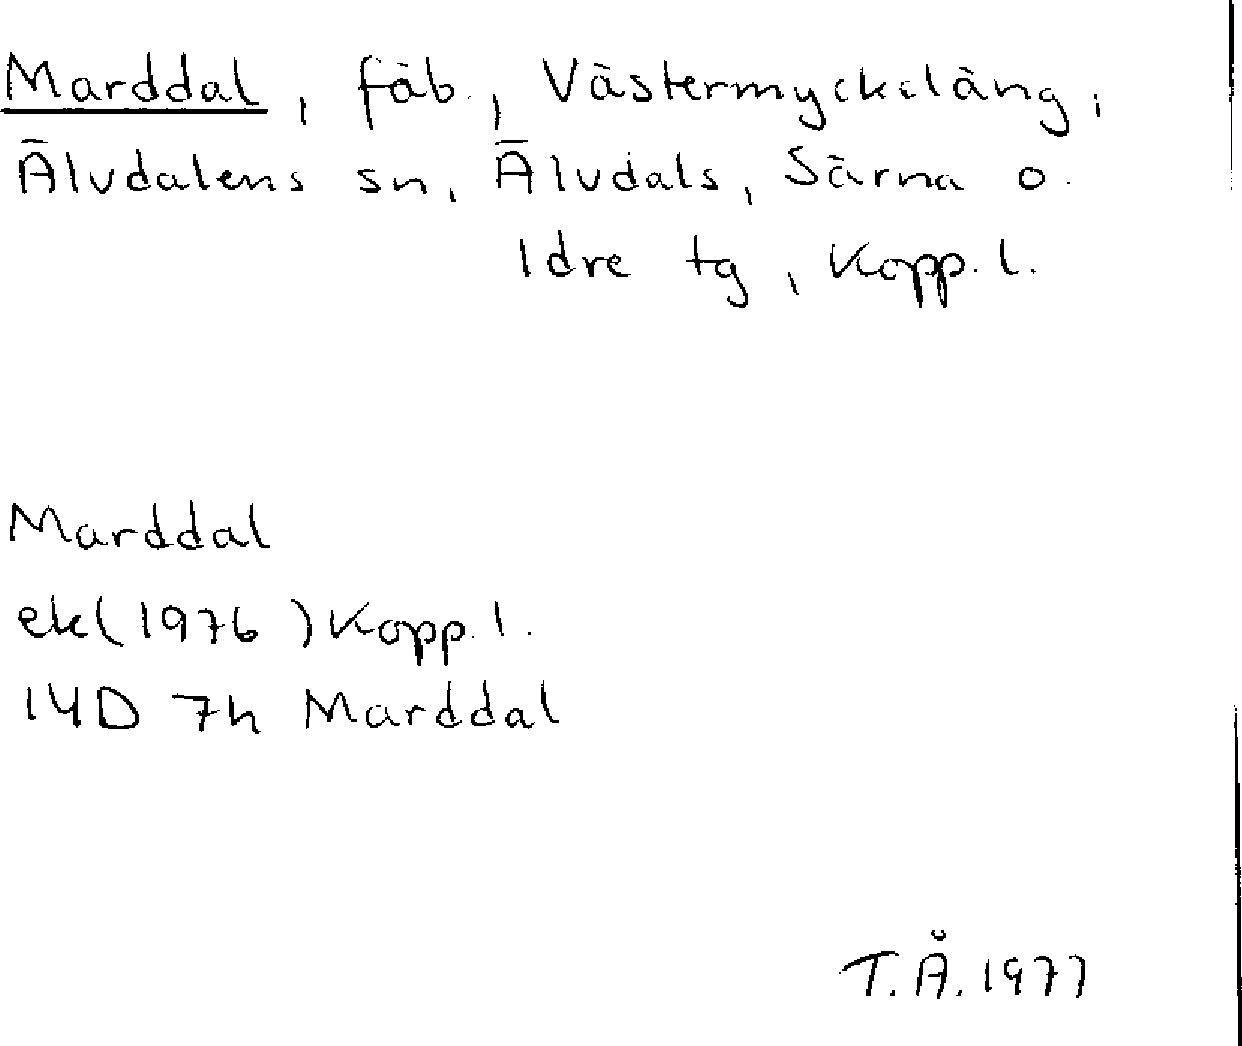 Marddal, fäb., Västermyckeläng,
Älvdalens sn, Älvdals, Särna o.
Idre tg, Kopp. l.
Marddal
ekl(1976) Kopp. l.
14D 7h Marddal
T.Å. 1977